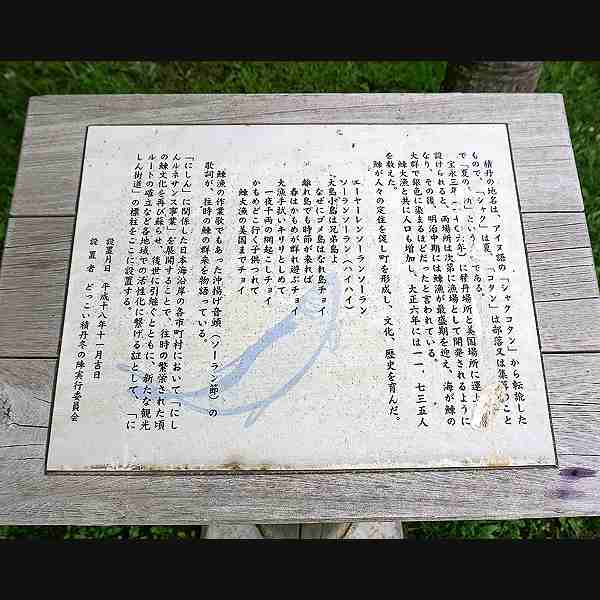 積丹の地名は、アイヌ語の「シャクコタン」から転訛した
もので、「シャク」は夏、「コタン」は部落又は集落のこと
で「夏の、村」という である。
宝永三年(一七〇六年)に積丹場所と美国場所に運上
設けられると、両場所は次第に漁場として開発されるように
なり、その後、明治中期には鰊漁が最盛期を迎え、海が鰊の
大群で銀色に染まるほどだったと言われている。
鰊大漁と共に人口も増加し、大正六年には一一、七三五人
を数えた。
鰊が人々の定住を促し町を形成し、文化、歴史を育んだ。
エーヤーレンソーランソーラン
ソーランソーラン(ハイハイ)
大島小島は兄弟島よ
なぜにゴメ島はなれ島チョイ
離れ島でも時節が来れば
春はかもめが群れ遊ぶチョイ
大漁手拭いキリリとしめて
一夜千両の網起こしチョイ
かもめどこ行く子供つれて
鰊大漁の美国までチョイ
鰊漁の作業歌でもあった沖揚げ音頭(ソーラン節)の
歌詞が、往時の鰊の群来を物語っている。
「にしん」に関係した日本海沿岸の各市町村において「にし
んルネサンス事業」を展開することで、往時の繁栄された頃
の鰊文化を再び蘇らせ、後世に引継ぐとともに、新たな観光
ルートの確立など各地域での活性化に繋げる証として、「に
しん街道」の標柱をここに設置する。
設置月日 平成十八年十一月吉日
設置者 どっこい積丹冬の陣実行委員会